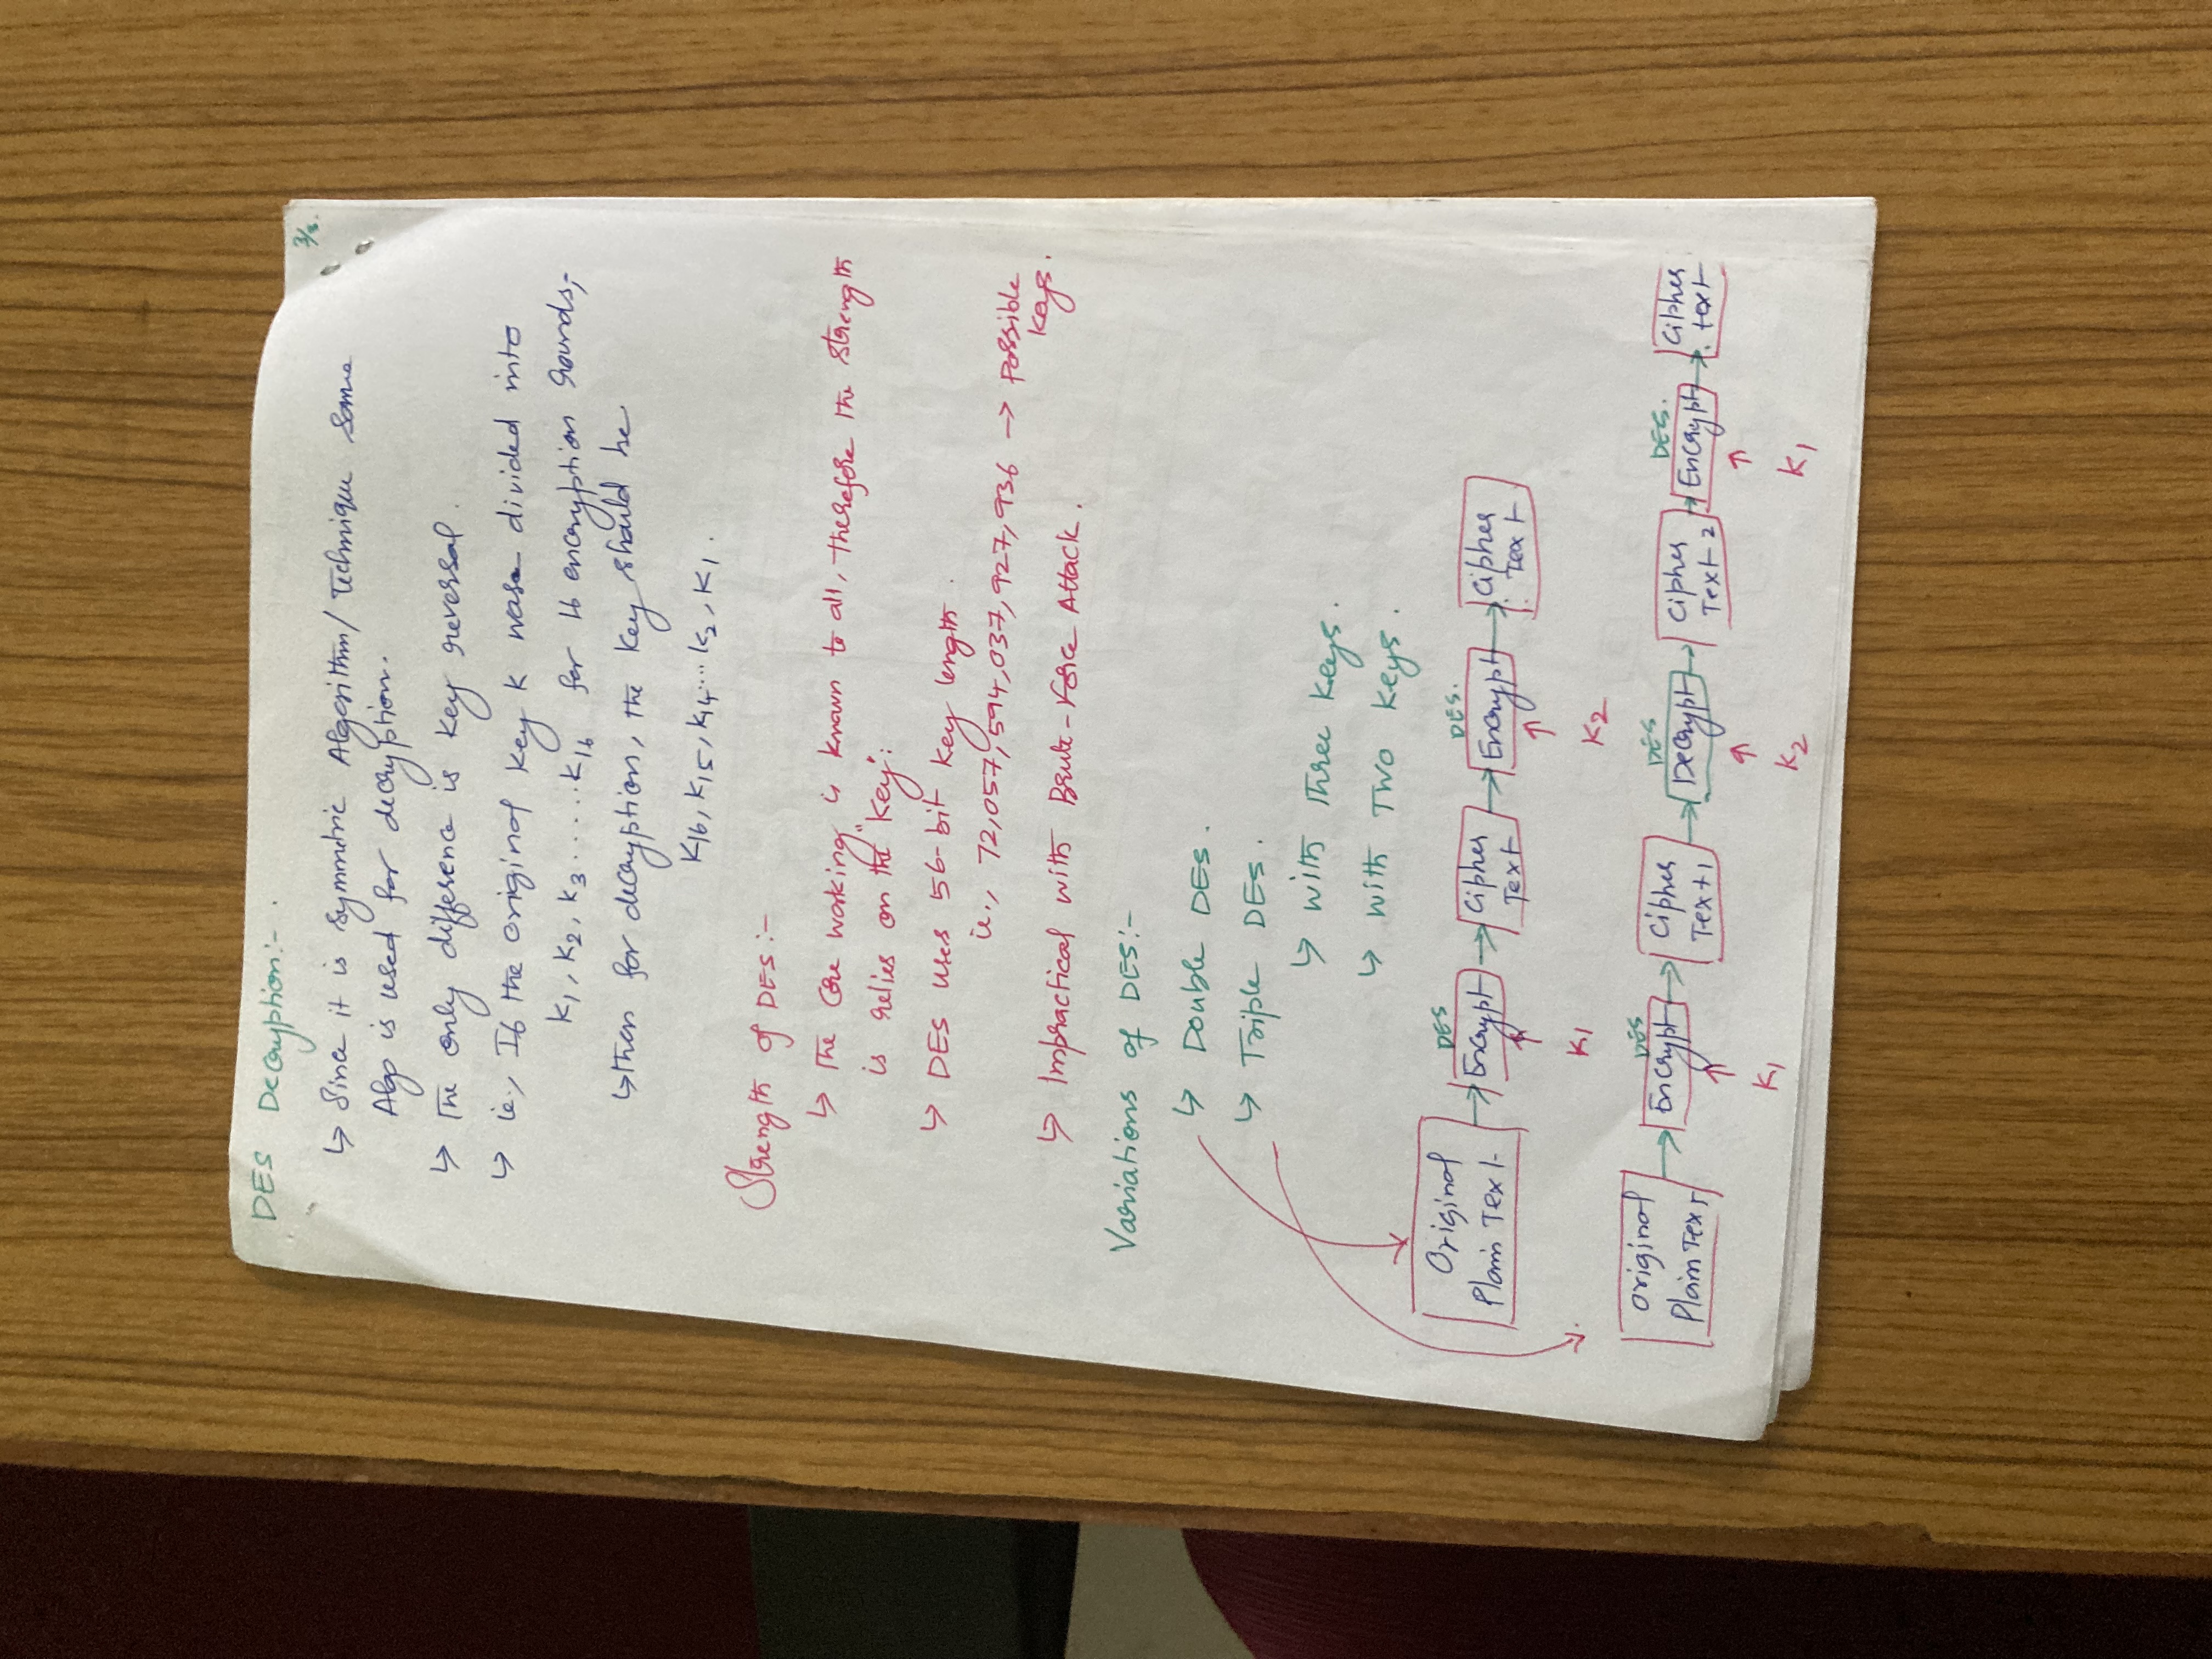 DES Decryption:-
3/3.
↳ Since it is Symmetric Algorithm/Technique Same
Algo is used for decryption.
↳ The only difference is key reversal.
↳ ie., If the original key K was divided into
K1, K2, K3.....K16 for 16 encryption rounds,
↳ then for decryption, the key should be
K16, K15, K14...K2, K1.
Strength of DES:-
↳ The Core working is known to all, therefore the strength
is relies on the "Key":
↳ DES uses 56-bit key length.
ie., 72,057,594,037,927,936 → Possible
keys.
↳ Impractical with Brute-Force Attack.
Variations of DES:-
↳ Double DES.
↳ Triple DES.
↳ with three keys.
↳ with Two keys.
DES DES.
Original Encrypt Cipher Encrypt Cipher
Plain Text Text Text
K1 K2
DES DES DES.
Original Encrypt Cipher Decrypt Cipher Encrypt Cipher
Plain Text Text1 Text2 text
K1 K2 K1